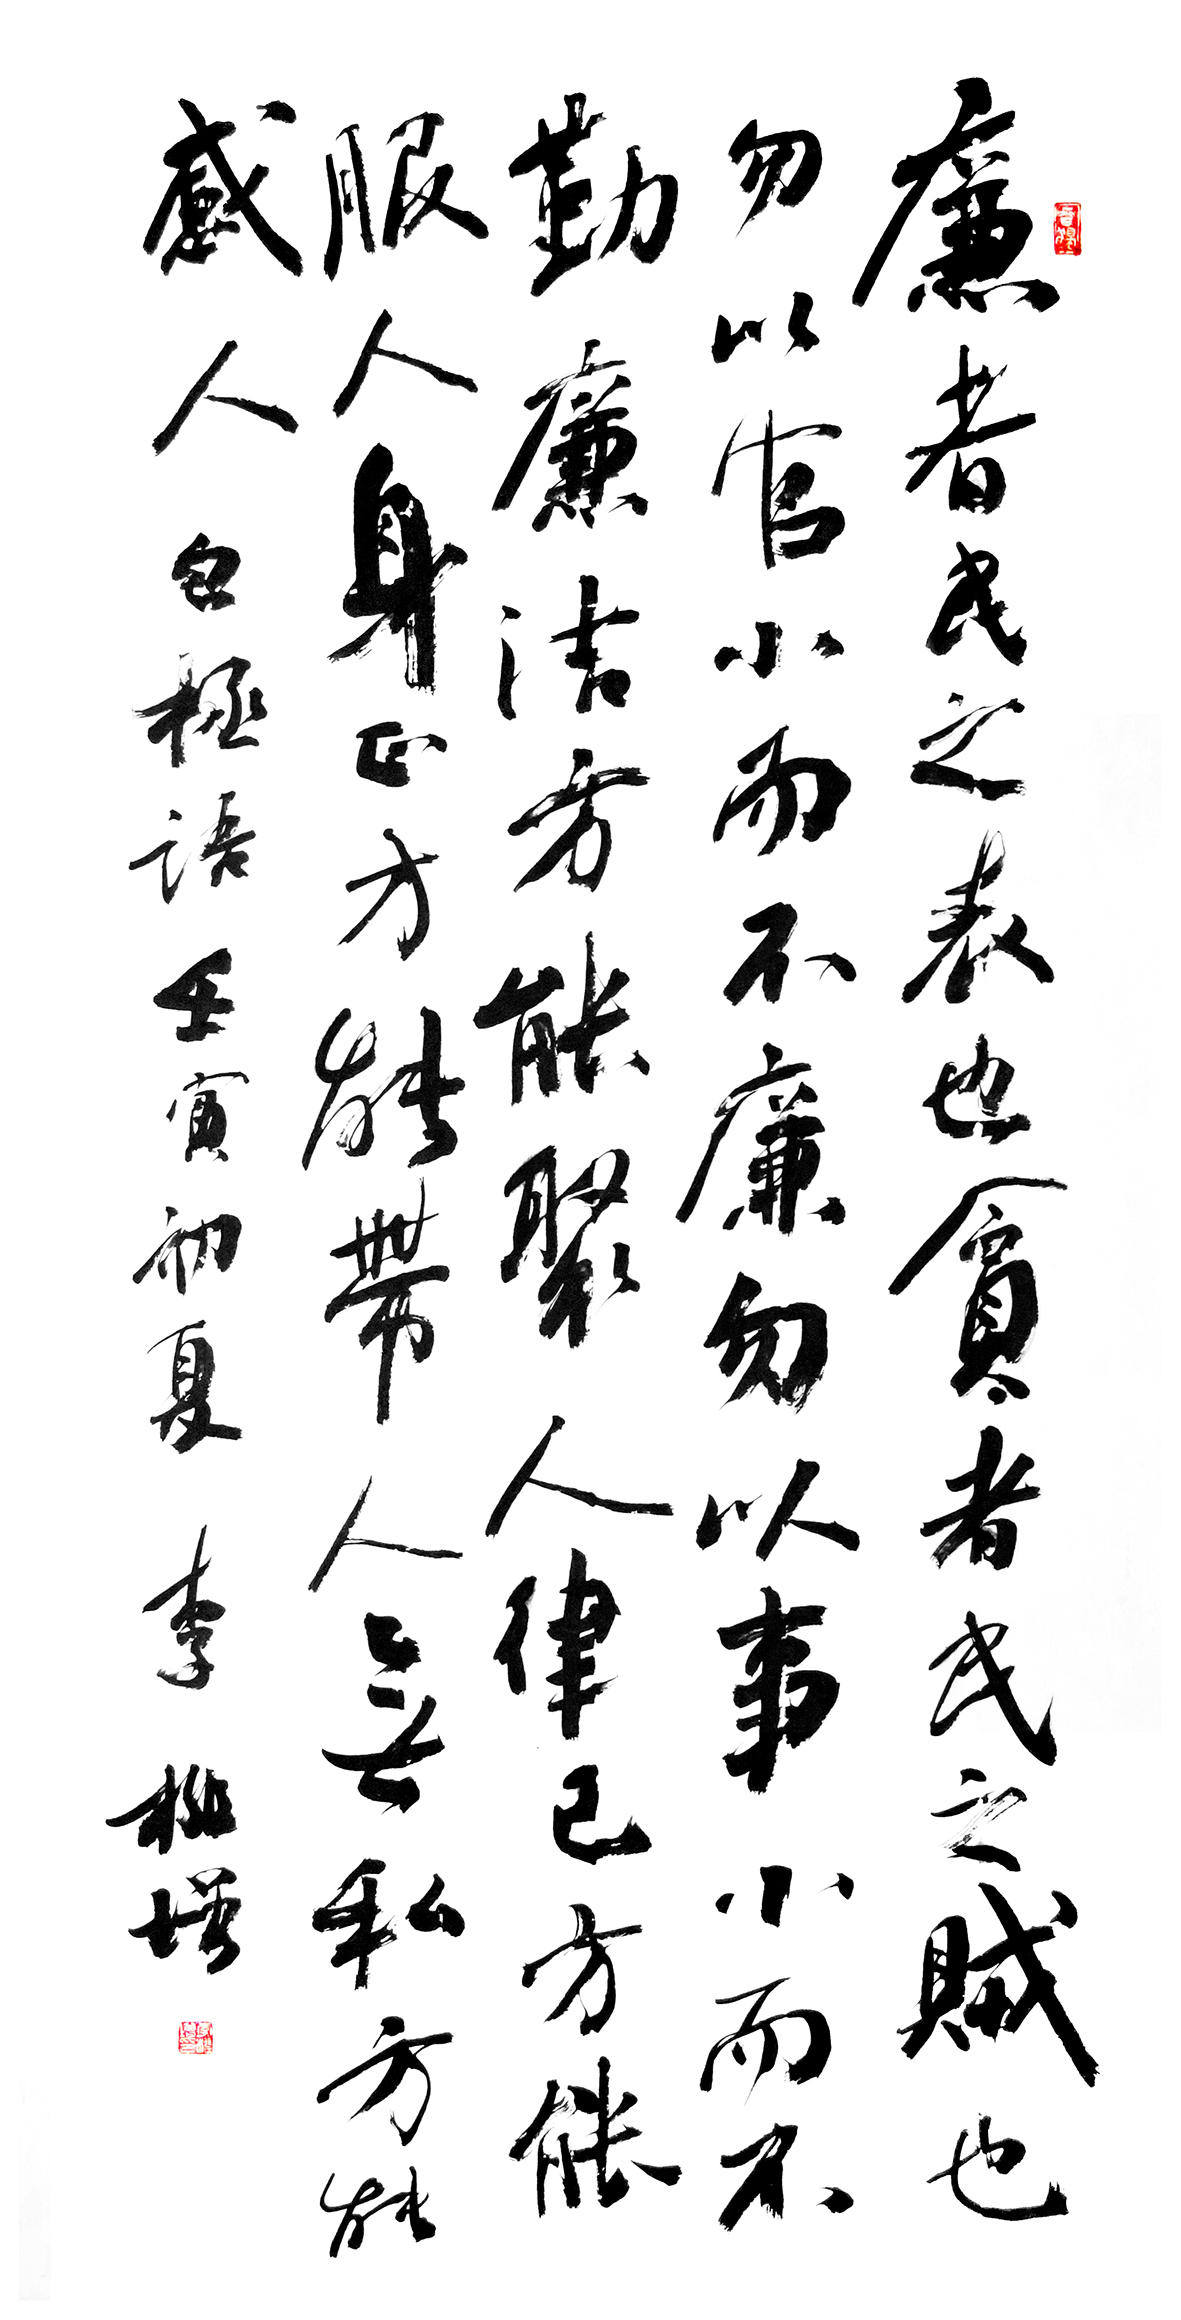 廉者民之表也貪者民之賊也
勿以官小而不廉勿以事小而不
勤廉洁方能聚人律己方能
服人身正方能帶人無私方能
感人 包拯語 壬寅初夏 李